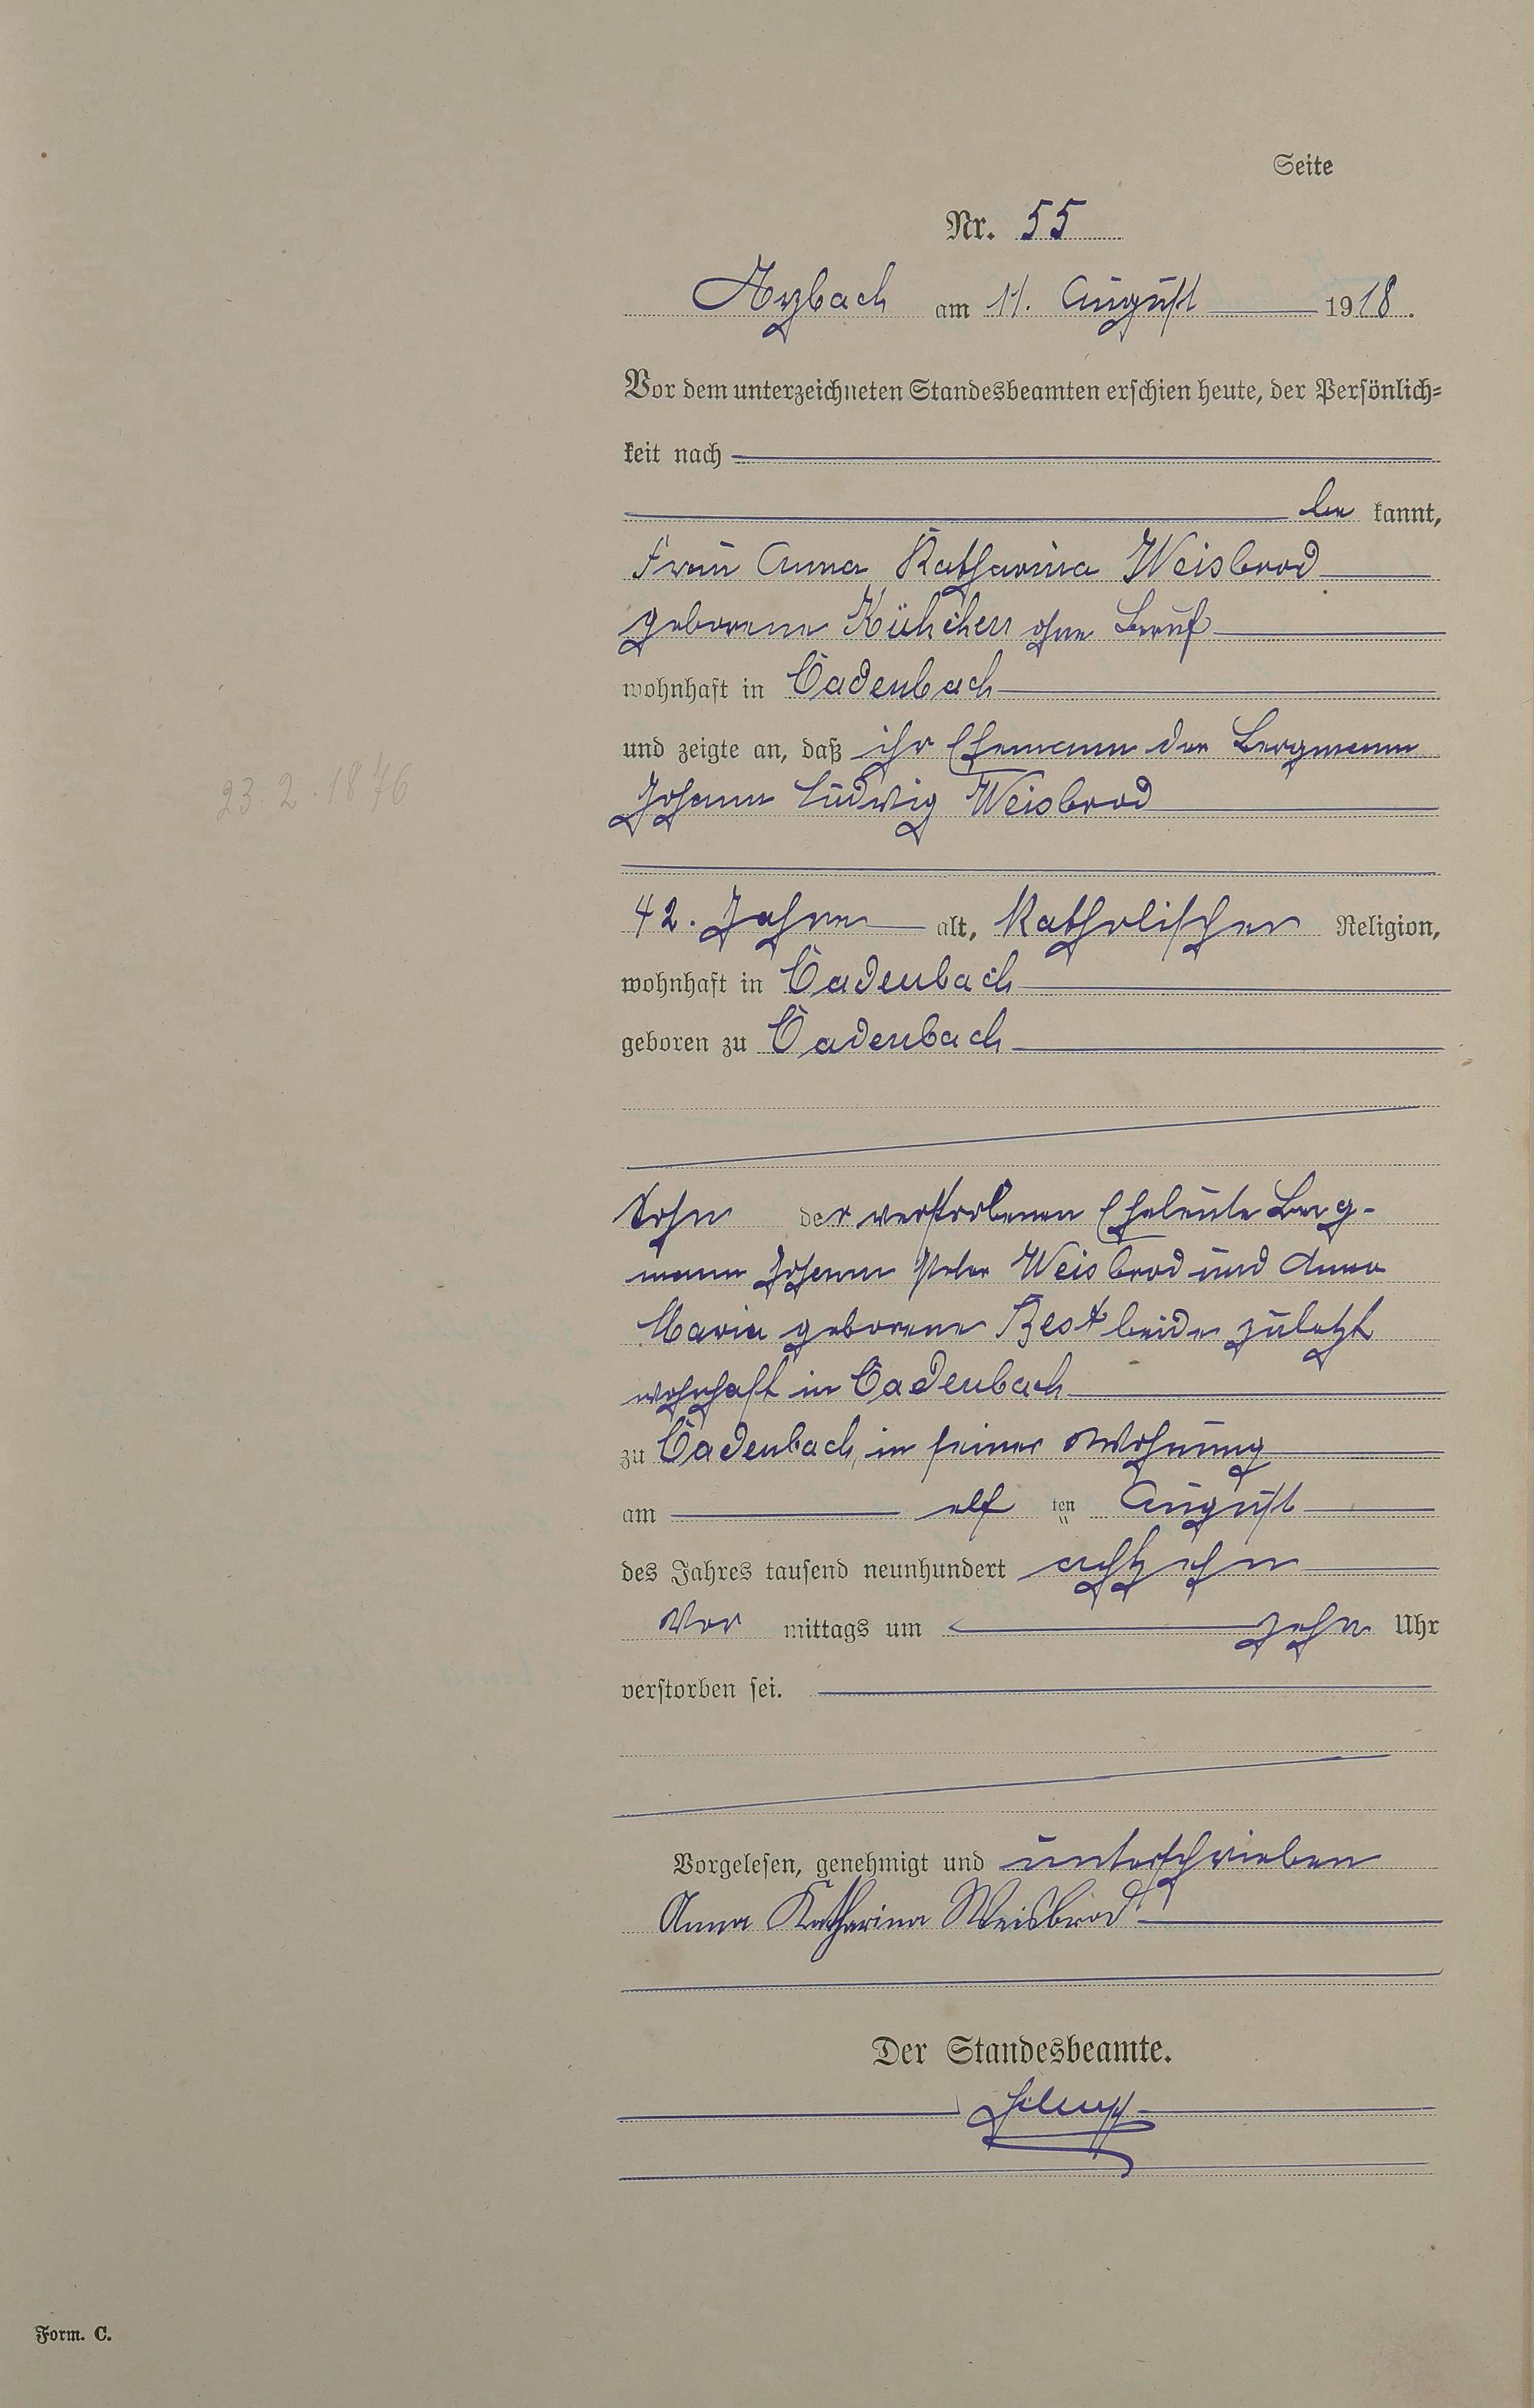 Seite
Nr. 55
Arzbach am 11. August 1918.
Vor dem unterzeichneten Standesbeamten erschien heute, der Persönlich-
keit nach
be kannt,
Frau Anna Katharina Weisbrod
geborene Kühchen ohne Beruf
wohnhaft in Cadenbach
und zeigte an, daß ihr Ehemann der Bergmann
23.2.1876
Johann Ludwig Weisbrod
42. Jahre alt, Katholischer Religion,
wohnhaft in Cadenbach
geboren zu Cadenbach
Sohn der verstorbenen Eheleute Berg-
mann Johann Peter Weisbrod und Anna
Maria geborene Best beide zuletzt
wohnhaft in Cadenbach
zu Cadenbach, in seiner Wohnung
am elf ten August
des Jahres tausend neunhundert achtzehn
Vor mittags um zehn Uhr
verstorben sei.
Vorgelesen, genehmigt und unterschrieben
Anna Katharina Weisbrod
Der Standesbeamte.
Form. C.